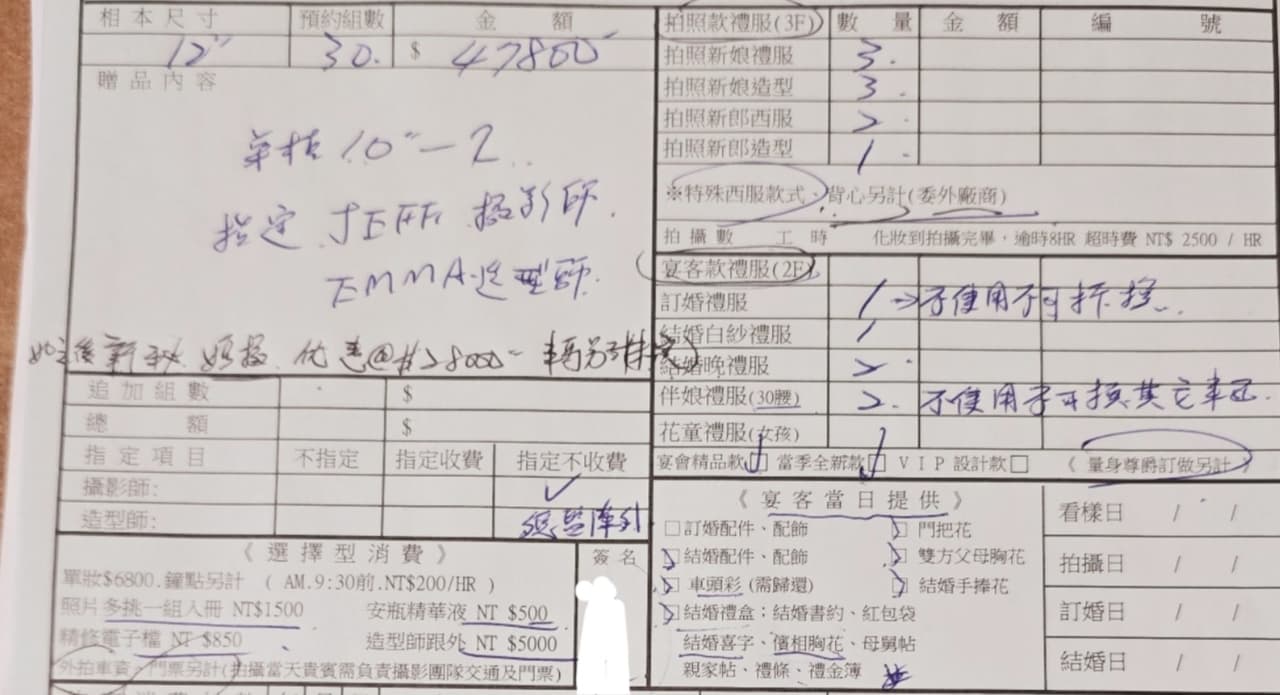 相本尺寸 預約組數 金額
12" 30. $ 47800
贈品內容
10"-2
指定 JEFF 攝影師.
EMMA造型師.
追加組數 $
總額 $
指定項目 不指定 指定收費 指定不收費
攝影師: ✓
造型師:
《選擇型消費》
單妝$6800.鐘點另計 ( AM.9:30前.NT$200/HR )
照片多挑一組入冊 NT$1500 安瓶精華液 NT $500
精修電子檔 NT $850 造型師跟外 NT $5000
外拍車資、門票另計(拍攝當天貴賓需負責攝影團隊交通及門票)
簽名
拍照款禮服(3F) 數量 金額 編號
拍照新娘禮服 3.
拍照新娘造型 3.
拍照新郎西服 2
拍照新郎造型 1
※特殊西服款式、背心另計(委外廠商)
拍攝數 工時 化妝到拍攝完畢，逾時8HR 超時費 NT$ 2500 / HR
宴客款禮服(2F)
訂婚禮服 1→不使用不可折換.
結婚白紗禮服 1
結婚晚禮服 2
伴娘禮服(30腰) 2. 不使用不可換其它
花童禮服(女孩)
宴會精品款☑ 當季全新款☑ VIP設計款□ 《量身尊爵訂做另計》
《宴客當日提供》
□訂婚配件、配飾 門把花
結婚配件、配飾 雙方父母胸花
車頭彩(需歸還) 結婚手捧花
結婚禮盒：結婚書約、紅包袋
結婚喜字、儐相胸花、母舅帖
親家帖、禮條、禮金簿
看樣日 / /
拍攝日 / /
訂婚日 / /
結婚日 / /